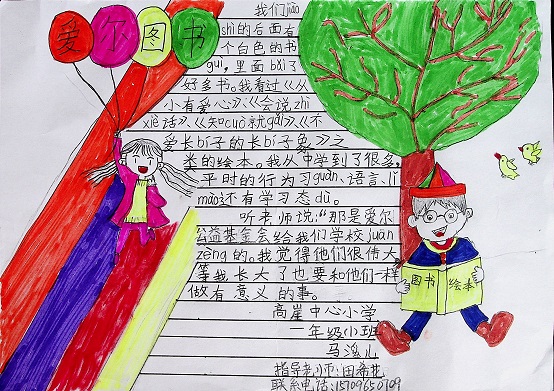 爱尔图书
我们jiāo
shì的后面有
个白色的书
guì，里面bǎi了
好多书。我看过《从
小有爱心》、《会说zhī
xiè话》、《知cuò就gǎi》、《不
爱长bí子的长bí子象》之
类的绘本。我从中学到了很多，
平时的行为习guàn、语言、lǐ
mào还有学习态dù。
听老师说：“那是爱尔
公益基金会给我们学校juān
zèng的。我觉得他们很伟大，
等我长大了也要和他们一样
做有意义的事。
图书 绘本
高崖中心小学
一年级(1)班
马逸儿
指导老师：田希花
联系电话：15709650709